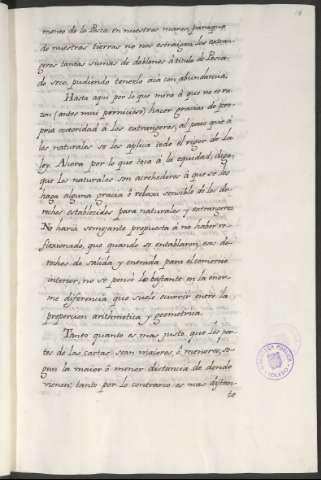 mento de la Pesca en nuestros mares, paraque
de nuestras tierras no nos extraigan los extran-
geros tantas sumas de doblones á titulo de Pesca-
do seco, pudiendo tenerlo acá con abundancia.
Hasta aqui por lo que mira á que no es ra-
zon (antes mui pernicioso) hacer gracias de pro-
pria autoridad á los extrangeros, al paso que á
los naturales se les aplica todo el rigor de la
ley. Ahora por lo que toca á la equidad, digo,
que los naturales son acrehedores á que se les
haga alguna gracia ó relaxe sensible de los de-
rechos establecidos para naturales y extrangeros.
No haria semejante propuesta á no haber re-
flexionado, que quando se entablaron esos de-
rechos de salida y entrada para el comercio
interior, no se pensó lo bastante en la enor-
me diferencia que suele ocurrir entre la
proporcion arithmetica y geometrica.
Tanto quanto es mas justo, que los por-
tes de las cartas sean maiores, ó menores, se-
gun la maior ó menor distancia de donde
vienen; tanto por lo contrario es mas distan-
te